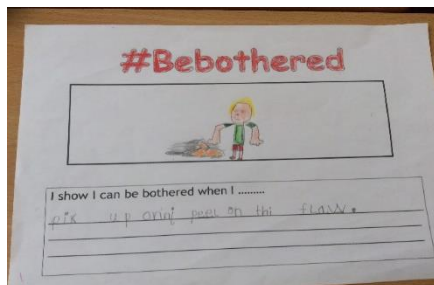 #Bebothered
I show I can be bothered when I .........
pik up orinj peel on thi flaw.